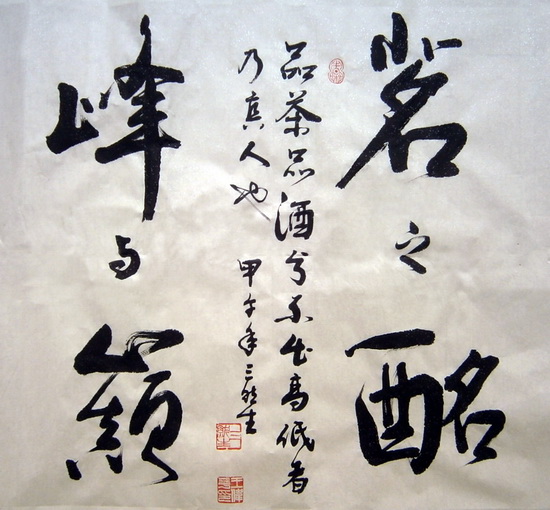 茗之酩
品茶品酒分不出高低者
乃真人也 甲午年三
峰与巅